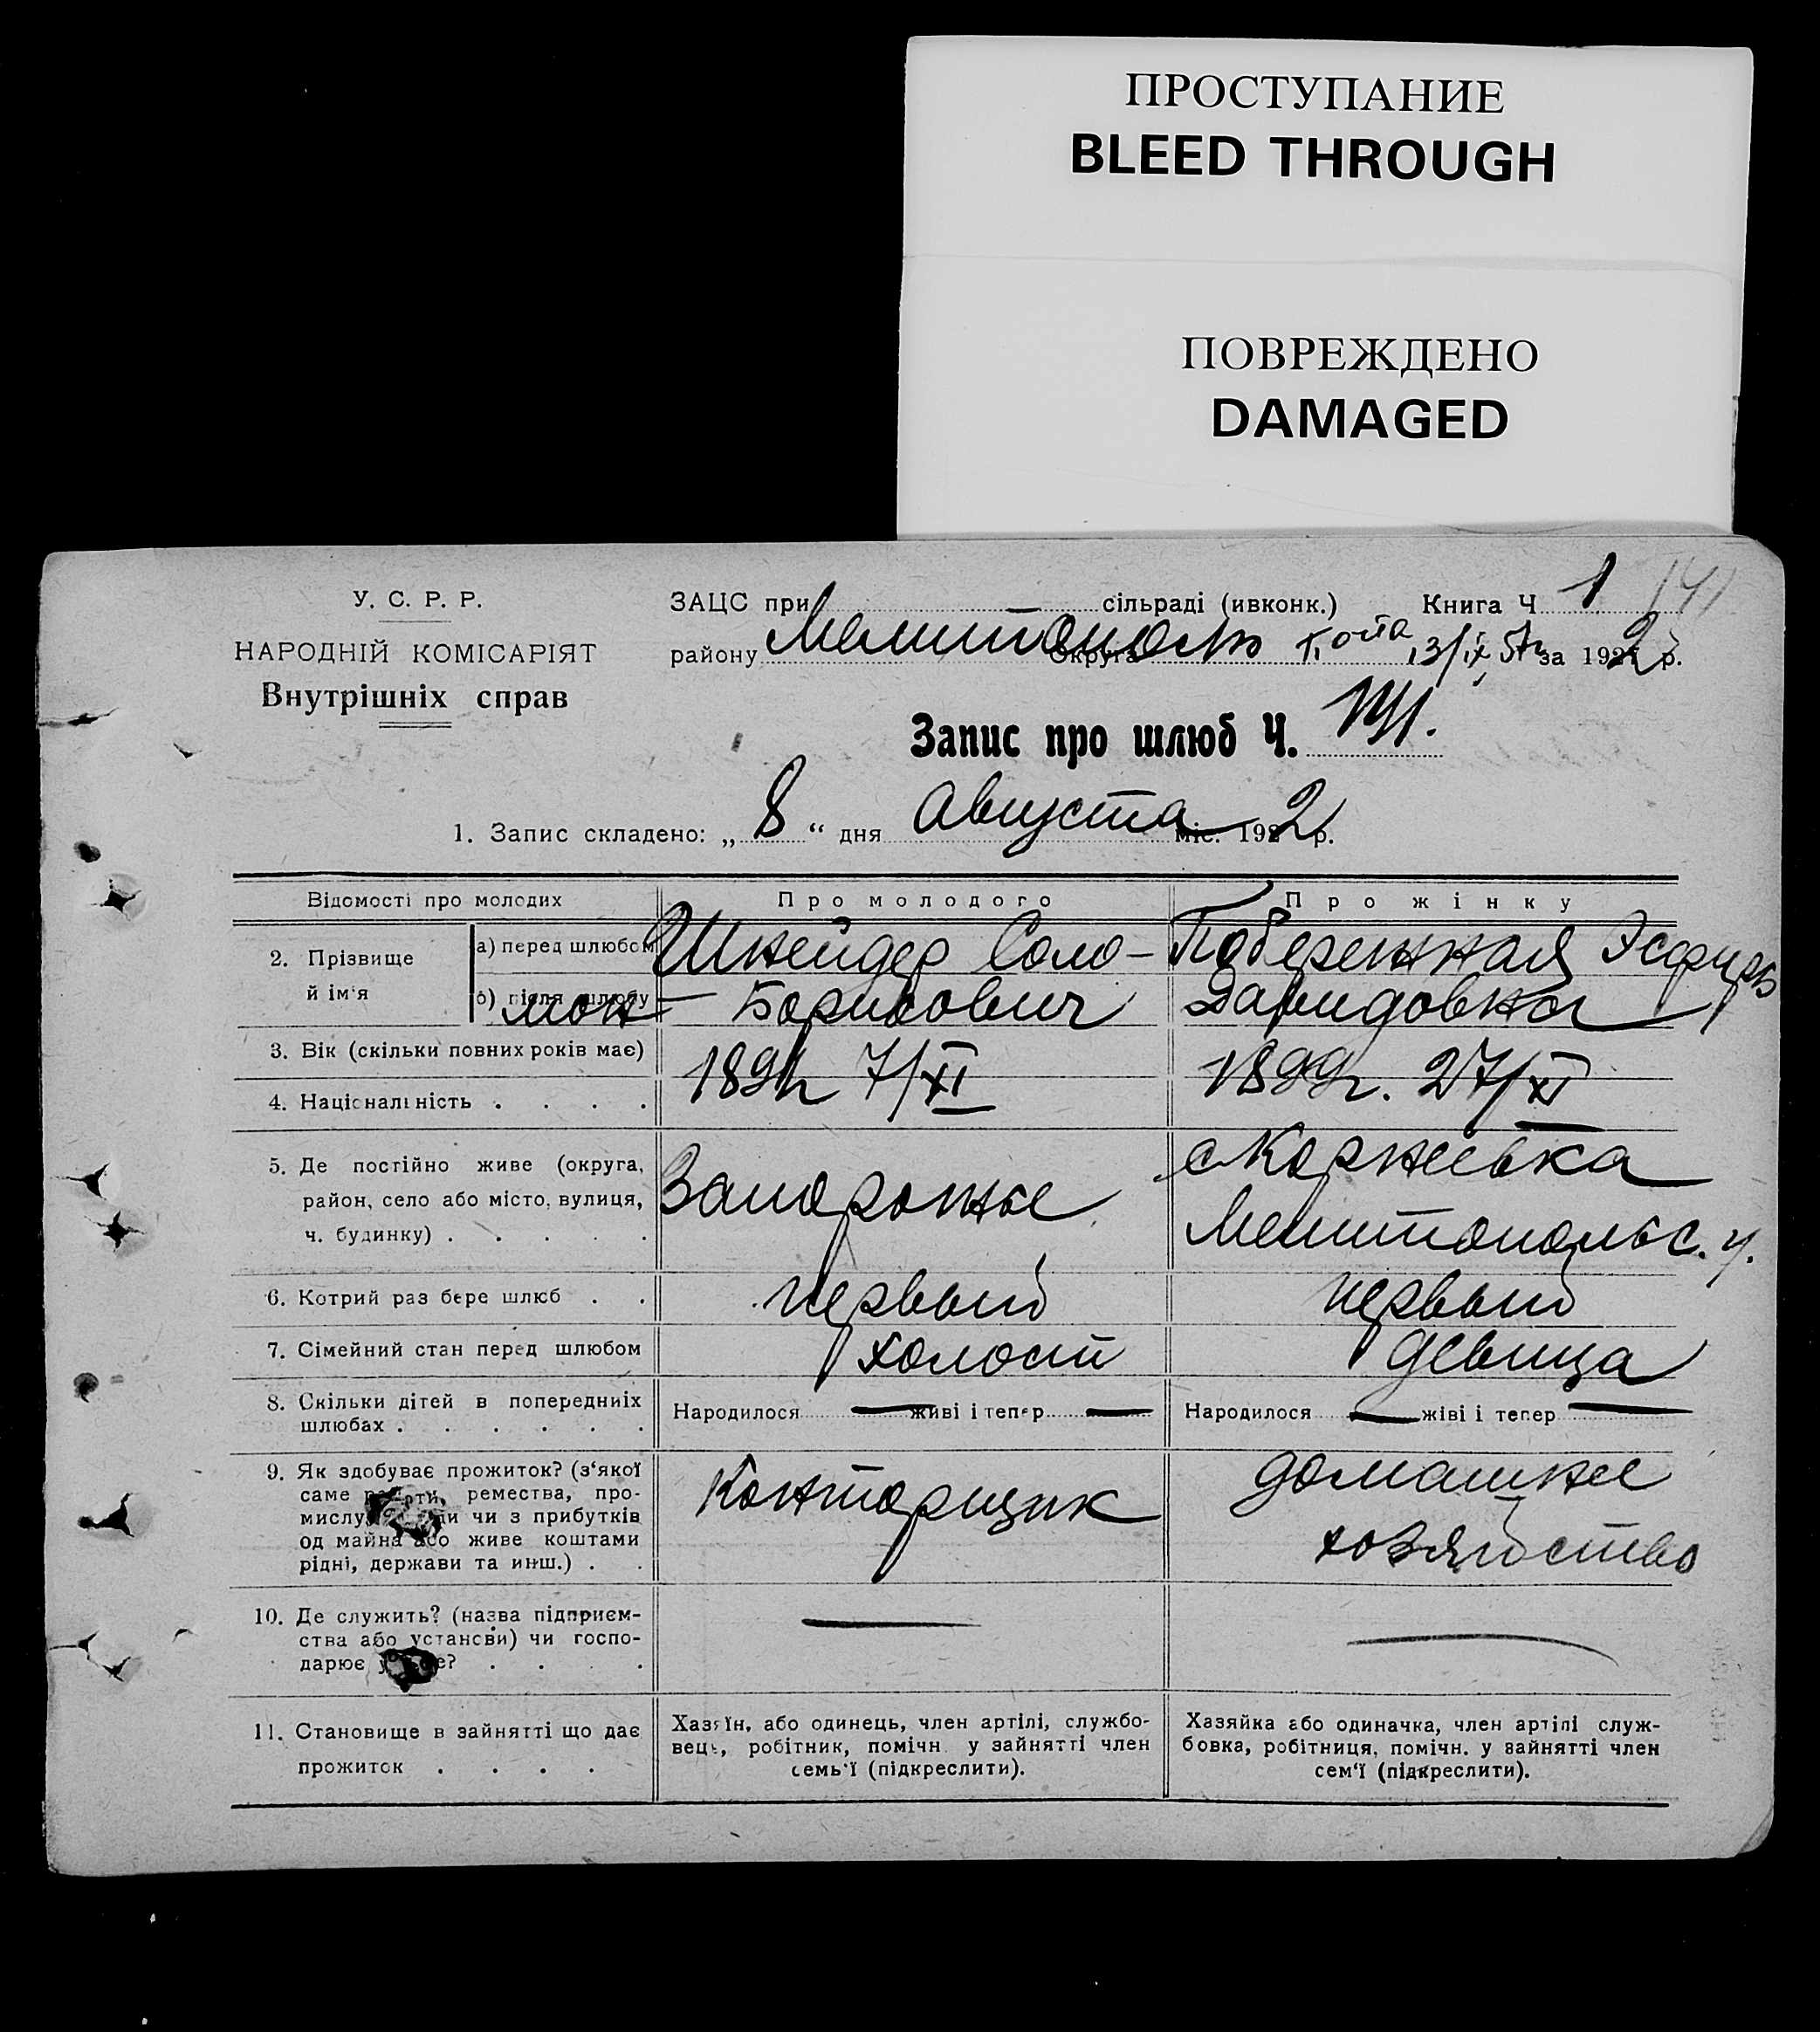 ПРОСТУПАНИЕ
BLEED THROUGH
ПОВРЕЖДЕНО
DAMAGED
У. С. Р. Р.
НАРОДНІЙ КОМІСАРІЯТ
Внутрішніх справ
ЗАЦС при сільраді (ивконк.) Книга Ч 1 141
району Мелитополь Округа за 1922 р.
Запис про шлюб Ч. 141.
1. Запис складено: „ 8 “ дня Августа міс. 1922 р.
Відомості про молодих Про молодого Про жінку
2. Прізвище й ім'я а) перед шлюбом Шнейдер Соло- Побережная Эсфирь
б) після шлюбу мон- Борисович Давидовна
3. Вік (скільки повних років має) 1891г 7/XI 1899г. 27/XI
4. Національність . . . .
5. Де постійно живе (округа, с Корнеевка
район, село або місто, вулиця, Запорожье
ч. будинку) . . . . . Мелитопольс. у.
6. Котрий раз бере шлюб . . первый первый
7. Сімейний стан перед шлюбом холост девица
8. Скільки дітей в попередниіх
шлюбах . . . . . . Народилося — живі і тепер — Народилося — жіві і тепер —
9. Як здобуває прожиток? (з'якої домашнее
саме ремества, про- Конторщик
мислу, чи з прибутків
од майна або живе коштами хозяйство
рідні, держави та инш.) . .
10. Де служить? (назва підприєм- — —
ства або установи) чи госпо-
дарює . . . .
11. Становище в зайнятті що дає
прожиток . . . .
Хазяїн, або одинець, член артілі, службо-
вець, робітник, помічн. у зайнятті член
семь'ї (підкреслити).
Хазяйка або одиначка, член артілі служ-
бовка, робітниця, помічн. у зайнятті член
сем'ї (підкреслити).